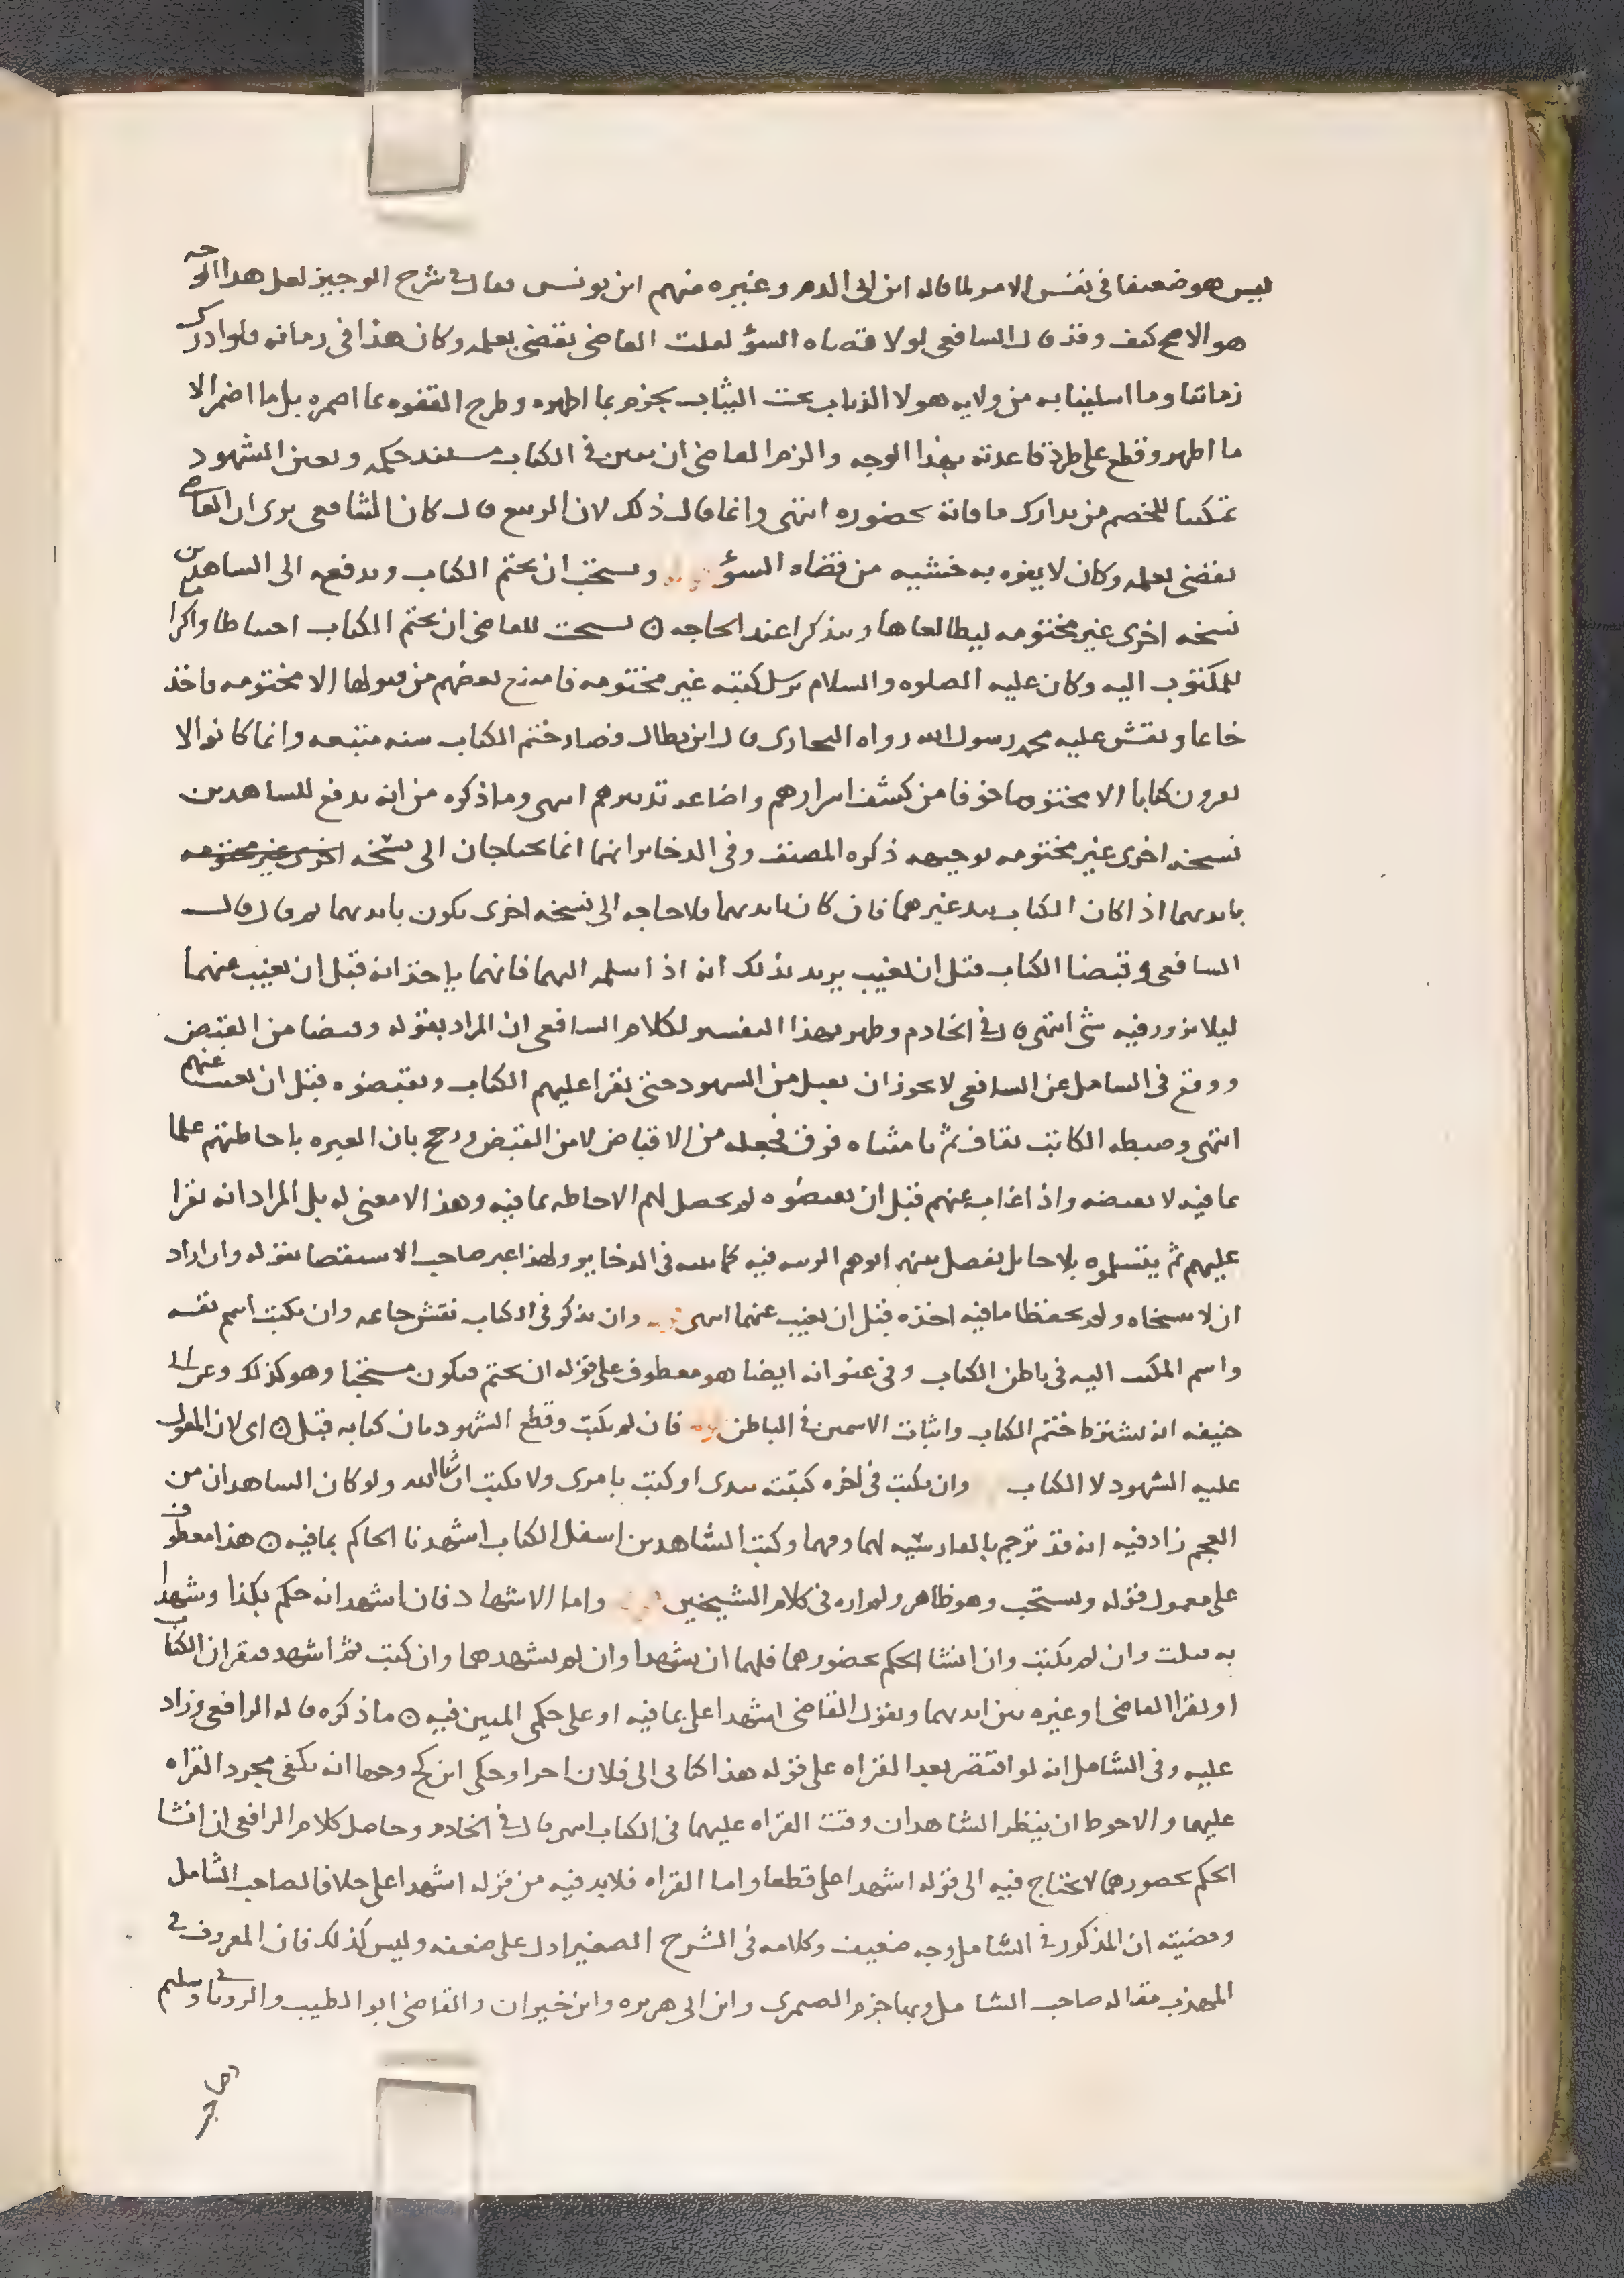 ليس هو ضعيفا في نفس الامر لما قاله ابن ابي الدم وغيره منهم ابن يونس فقال في شرح الوجيز لعل هذا الوجه
هو الاصح كيف وقد قال الشافعي لولا قضاه السؤ لقلت القاضي يقضي بعلمه وكان هذا في زمانه فلو ادرك
زماننا وما ابتلينا به من ولايه هولا الذياب تحت الثياب بجزم بما اظهره وطرح التفوه عما اضمره بل ما اضمر الا
ما اظهر وقطع على طرد قاعدته بهذا الوجه والزم القاضي ان يعين في الكتاب مستند حكمه وتعين الشهود
تمكينا للخصم من تدارك ما فاته بحضوره انتهى وانما قال ذلك لان الربيع قال كان الشافعي يرى ان القاضي
يقضي بعلمه وكان لا يفوه به خشيه من قضاه السؤ ويستحب ان يختم الكتاب ويدفع الى الشاهدين
نسخه اخرى غير مختومه ليطالعاها ويتذكرا عند الحاجه ن يستحب للقاضي ان يختم الكتاب احتياطا واكراما
للمكتوب اليه وكان عليه الصلوه والسلام يرسل كتبه غير مختومه فامتنع بعضهم من قبولها الا مختومه فاخذ
خاتما ونقش عليه محمد رسول الله رواه البخاري قال ابن بطال وصار ختم الكتاب سنه متبعه وانما كانوا لا
يقرون كتابا الا مختوما خوفا من كشف اسرارهم واضاعه تدبيرهم انتهى وما ذكره من انه يدفع للشاهدين
نسخه اخرى غير مختومه توجيهه ذكره المصنف وفي الدخاير انهما انما يحتاجان الى نسخه اخرى غير مختومه
بايديهما اذا كان الكتاب بيد غيرهما فان كان بايديهما فلا حاجه الى نسخه اخرى تكون بايديهما ثم قال قال
الشافعي وقبضا الكتاب قبل ان يغيب يريد بذلك انه اذا سلمه اليهما فانهما ياخذانه قبل ان يغيب عنهما
ليلا يزور فيه شي انتهى قال في الخادم وظهر بهذا التفسير لكلام الشافعي ان المراد بقوله وقبضا من القبض
ووقع في الشامل عن الشافعي لا يجوز ان يقبل من الشهود حتى يقرا عليهم الكتاب ويقبضوه قبل ان يغيب عنهم
انتهى وضبطه الكاتب بقاف ثم تا مثناه فوق فجعله من الاقتباض لا من القبض ورجح بان العبره باحاطتهم علما
بما فيه لا بقبضه واذا غاب عنهم قبل ان يقبضوه لم يحصل لهم الاحاطه بما فيه وهذا لا معنى له بل المراد انه يقرا
عليهم ثم يتسلموه بلا حايل يفصل بينهم ابوهم الريبه فيه كما بينه في الدخاير ولهذا عبر صاحب الاستقصا بقوله وان اراد
ان لا ينسخاه ولم يحفظا ما فيه اخذه قبل ان يغيب عنهما انتهى وان يذكر في الكتاب نقش خاتمه وان يكتب اسم نفسه
واسم المكتوب اليه في باطن الكتاب وفي عنوانه ايضا هو معطوف على قوله ان يختم فيكون مستحبا وهو كذلك وعن ابي
حنيفه انه يشترط ختم الكتاب واثبات الاسمين في الباطن فان لم يكتب وقطع الشهود بان كتابه قبل ن اي لان المعول
عليه الشهود لا الكتاب وان يكتب في اخره كتبته بيدي او كتب بامري ولا يكتب ان شا الله ولو كان الشاهدان من
العجم زاد فيه انه قد ترجم بالفارسيه لهما وفهما وكتب الشاهدين اسفل الكتاب اشهدنا الحاكم بما فيه ن هذا معطوف
على معمول قوله ويستحب وهو ظاهر ولم اره في كلام الشيخين واما الاشهاد فان اشهد انه حكم بكذا وشهدا
به قبلت وان لم يكتب وان انشا الحكم بحضورهما فلهما ان يشهدا وان لم يشهدهما وان كتب ثم اشهد فيقران الكتاب
او يقرا القاضي او غيره بين ايديهما ويقول القاضي اشهدا علي بما فيه او على حكمي المبين فيه ن ما ذكره قاله الرافعي وزاد
عليه وفي الشامل انه لو اقتصر بعد القراه على قوله هذا كتابي الى فلان اجزا وحكى ابن كج وجها انه يكفي مجرد القراه
عليهما والاحوط ان ينظر الشاهدان وقت القراه عليهما في الكتاب انتهى قال في الخادم وحاصل كلام الرافعي ان انشا
الحكم بحضورهما لا يحتاج فيه الى قوله اشهدا علي قطعا واما القراه فلا بد فيه من قوله اشهدا علي خلافا لصاحب الشامل
وقضيته ان المذكور في الشامل وجه ضعيف وكلامه في الشرح الصغير ادل على ضعفه وليس كذلك فان المعروف في
المهذب مقاله صاحب الشامل وبها جزم الصيمري وابن ابي هريره وابن خيران والقاضي ابو الطيب والروياني وسليم